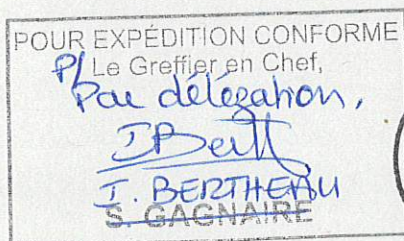 POUR EXPÉDITION CONFORME
P/ Le Greffier en Chef,
Par délégation,
I. BERTHEAU
S. GAGNAIRE